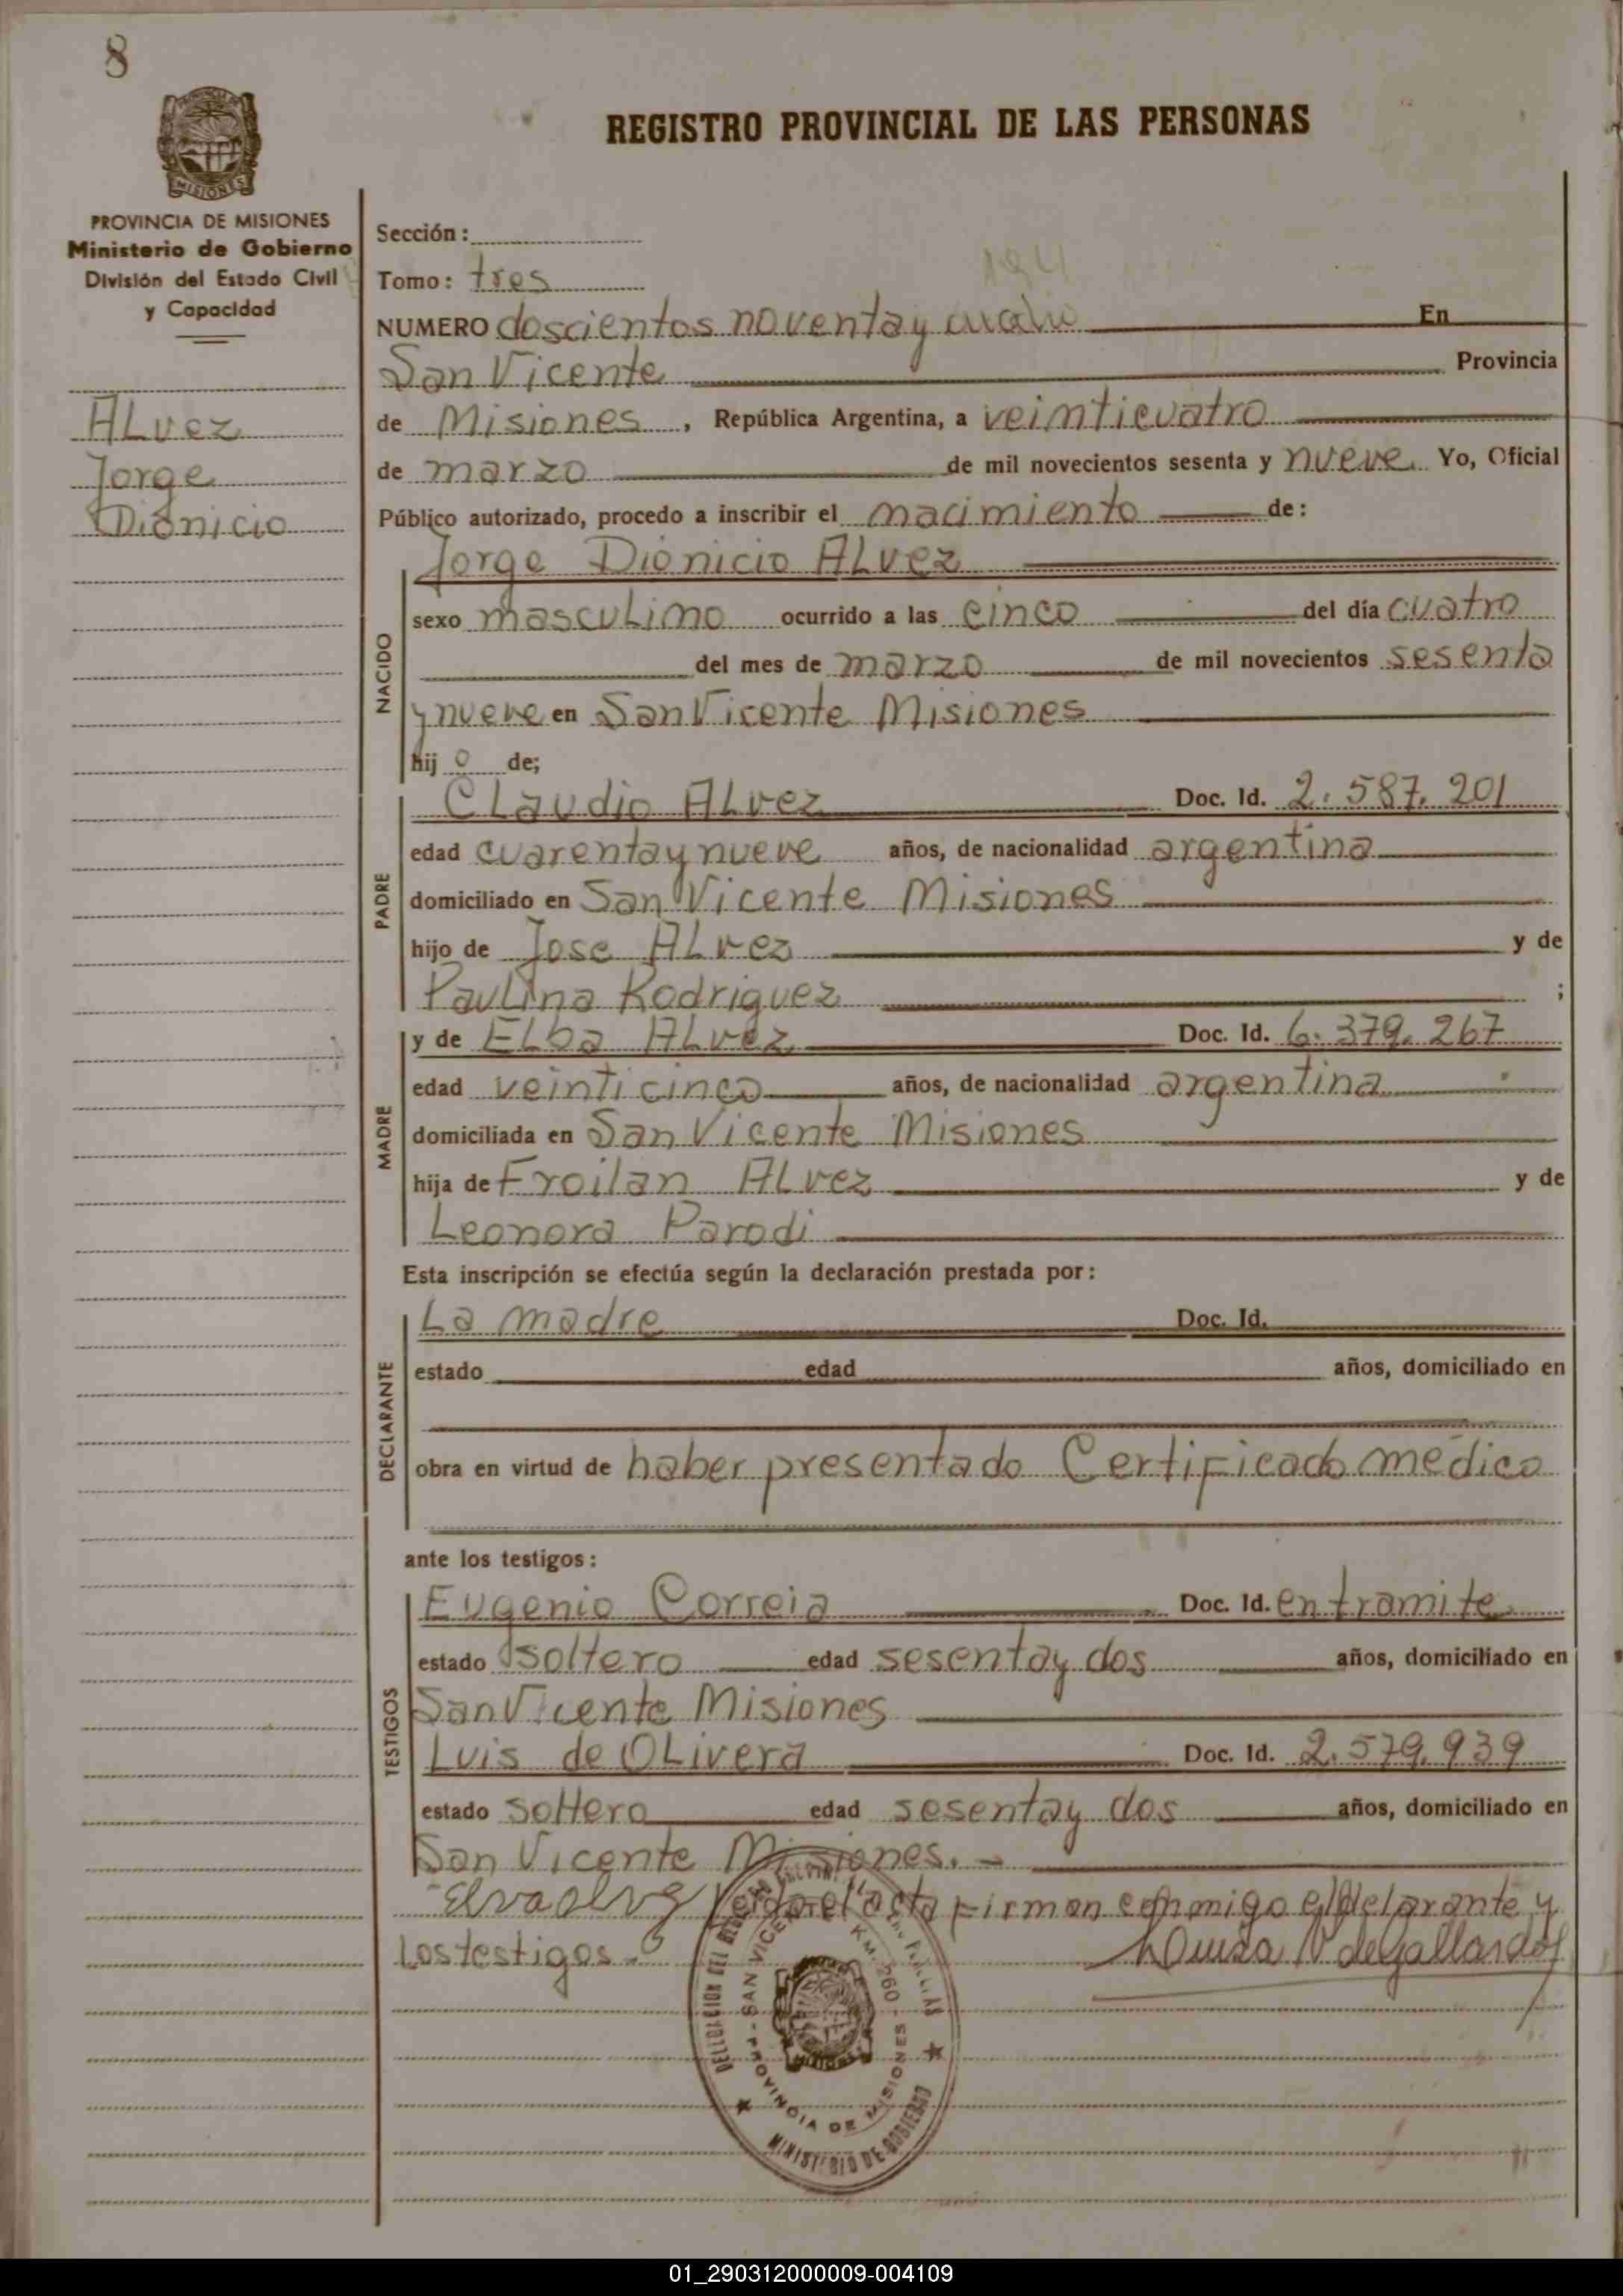 8
REGISTRO PROVINCIAL DE LAS PERSONAS
PROVINCIA DE MISIONES
Ministerio de Gobierno
División del Estado Civil
y Capacidad
ALvez
Jorge
Dionicio
Sección:
Tomo: tres
NUMERO doscientos noventa y cuatro En
San Vicente Provincia
de Misiones, República Argentina, a veinticuatro
de marzo de mil novecientos sesenta y nueve. Yo, Oficial
Público autorizado, procedo a inscribir el nacimiento de:
NACIDO
Jorge Dionicio ALvez
sexo mascuLino ocurrido a las cinco del día cuatro
del mes de marzo de mil novecientos sesenta
y nueve en San Vicente Misiones
hij o de;
PADRE
CLaudio ALvez Doc. Id. 2.587.201
edad cuarenta y nueve años, de nacionalidad argentina
domiciliado en San Vicente Misiones
hijo de Jose ALvez y de
PauLina Rodriguez ;
MADRE
y de ELba ALvez Doc. Id. 6.379.267
edad veinticinco años, de nacionalidad argentina
domiciliada en San Vicente Misiones
hija de Froilan ALvez y de
Leonora Parodi
Esta inscripción se efectúa según la declaración prestada por:
DECLARANTE
La madre Doc. Id.
estado edad años, domiciliado en
obra en virtud de haber presentado Certificado médico
ante los testigos:
TESTIGOS
Eugenio Correia Doc. Id. en tramite
estado soltero edad sesenta y dos años, domiciliado en
San Vicente Misiones
Luis de OLivera Doc. Id. 2.579.939
estado soltero edad sesenta y dos años, domiciliado en
San Vicente Misiones. -
acta firman conmigo y
Los testigos.-
de Gallardo
SAN VICENTE KM. 260
PROVINCIA DE MISIONES
MINISTERIO DE GOBIERNO
01_290312000009-004109